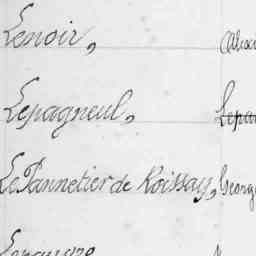 Lenoir,
Lepagneul, Lepa
Le Pannetier de Roissay, Georg